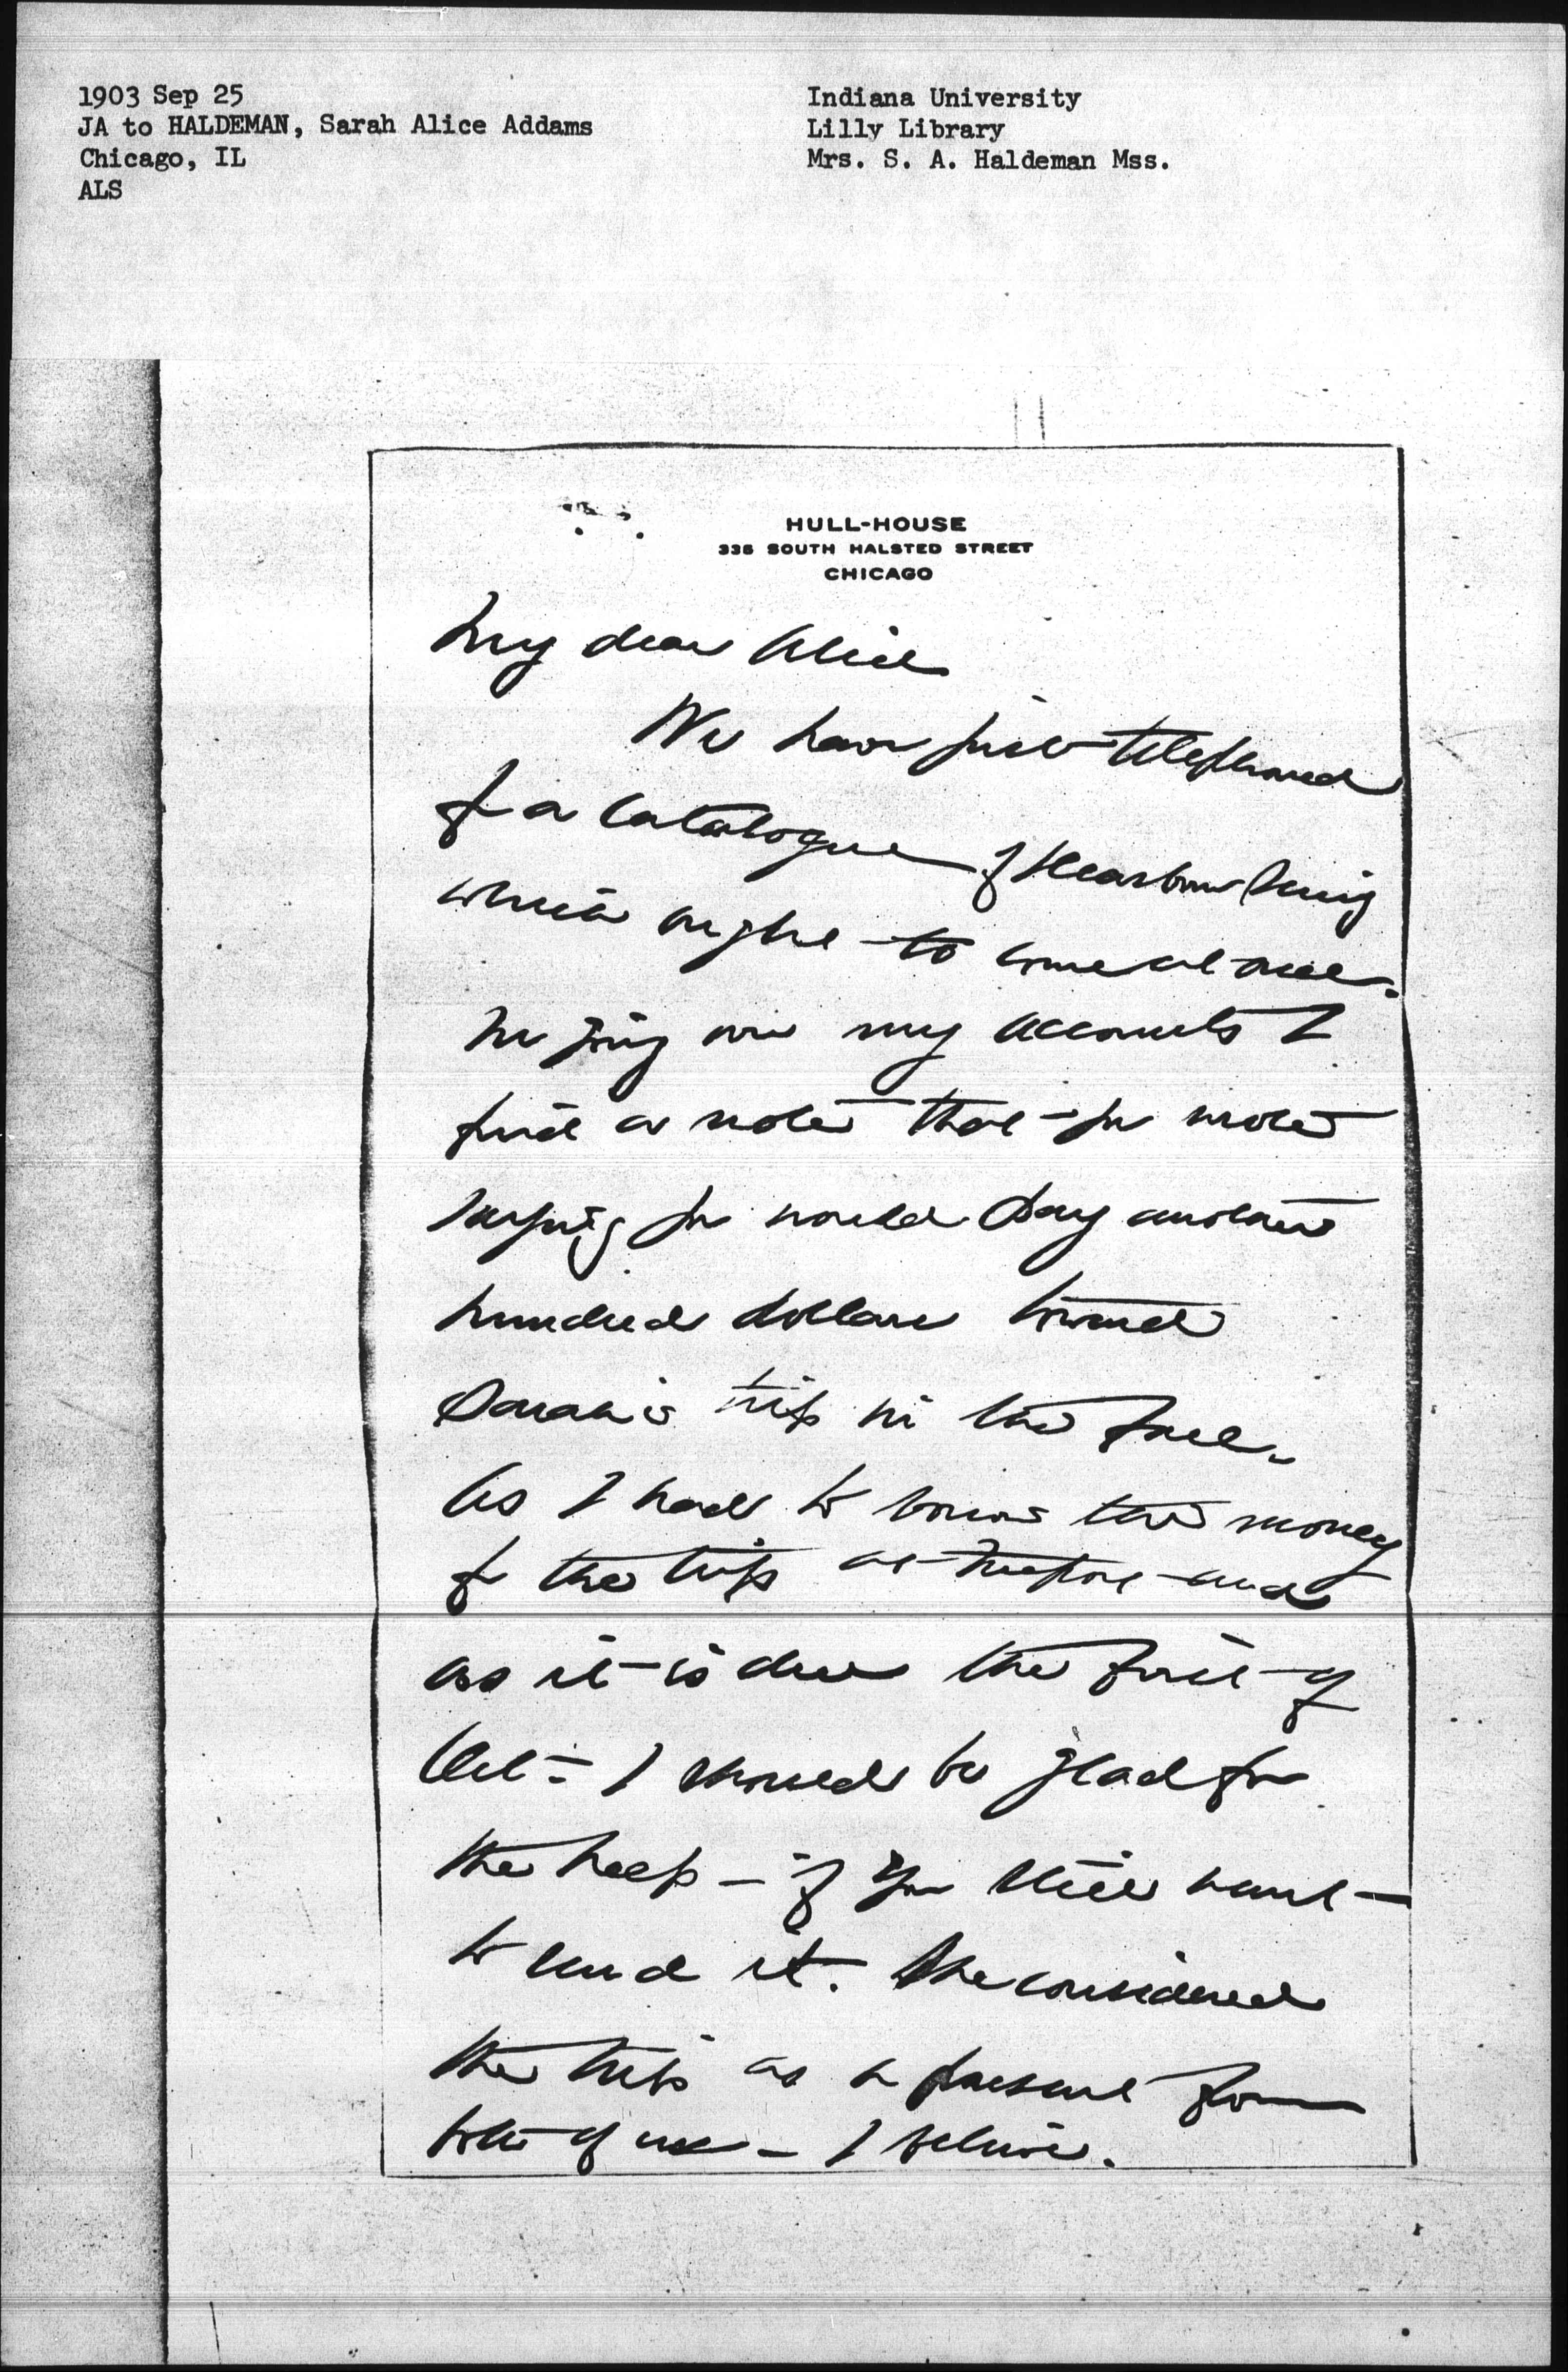 1903 Sep 25
JA to HALDEMAN, Sarah Alice Addams
Chicago, IL
ALS
Indiana University
Lilly Library
Mrs. S. A. Haldeman Mss.
HULL-HOUSE
335 SOUTH HALSTED STREET
CHICAGO
My dear Alice
We have just telephoned
for a catalogue of Dearborn Sem'y
which ought to come at once.
In going over my accounts I
find a note that you wrote
saying you would pay another
hundred dollars toward
Sarah's trip in the fall.
As I had to borrow the money
for the trip and
as it is due the first of
Oct – I should be glad for
the help – if you still want
to send it. She considered
the trip as a present from
both of us – I believe.